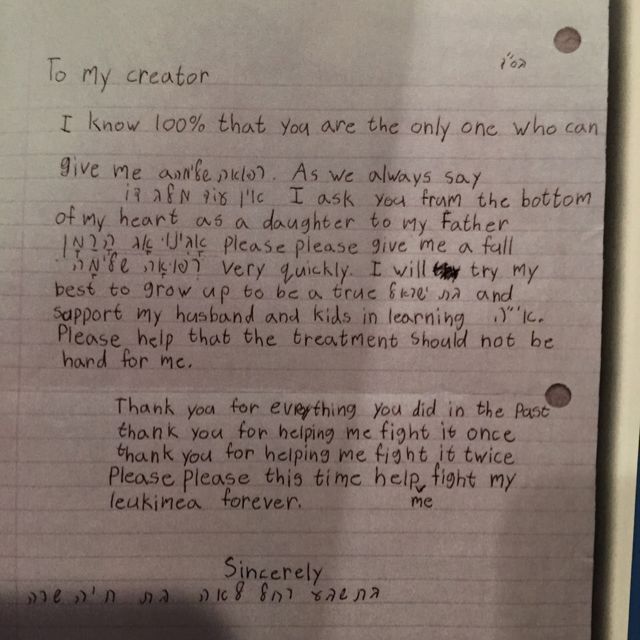 בס"ד
To my creator
I know 100% that you are the only one who can
give me רפואה שלימה. As we always say
אין עוד מלבדו I ask you from the bottom
of my heart as a daughter to my Father
אבינו אב הרחמן please please give me a full
רפואה שלימה very quickly. I will try my
best to grow up to be a true בת ישראל and
support my husband and kids in learning אי"ה.
Please help that the treatment should not be
hard for me.
Thank you for everything you did in the Past
thank you for helping me fight it once
thank you for helping me fight it twice
Please Please this time help me fight my
leukimea forever.
Sincerely
בת שבע רחל לאה בת חיה שרה